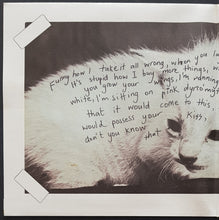 Funny how I take it all wrong, when you la
It's stupid how I buy more things, w
you grow your wings, I'm
white, I'm sitting on pink styrofoam
that it would come to this
would possess your kiss,
don't you know that